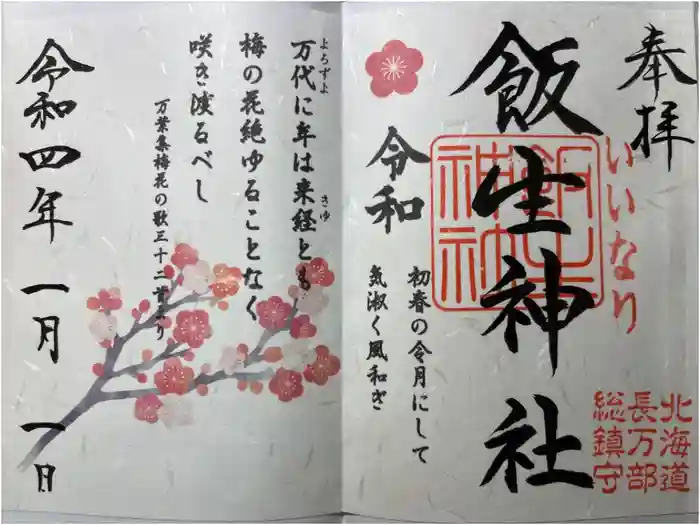 奉拝
いいなり
北海道
長万部
総鎮守
飯生神社
令和
初春の令月にして
気淑く風和ぎ
万代に年は来経とも
よろずよ
きゆ
梅の花絶ゆることなく
咲き渡るべし
万葉集梅花の歌三十二首より
令和四年 一月 一日